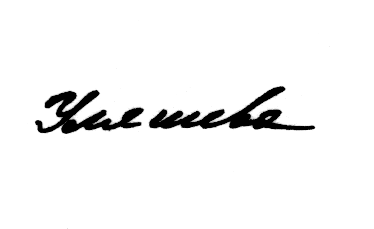 Улешева